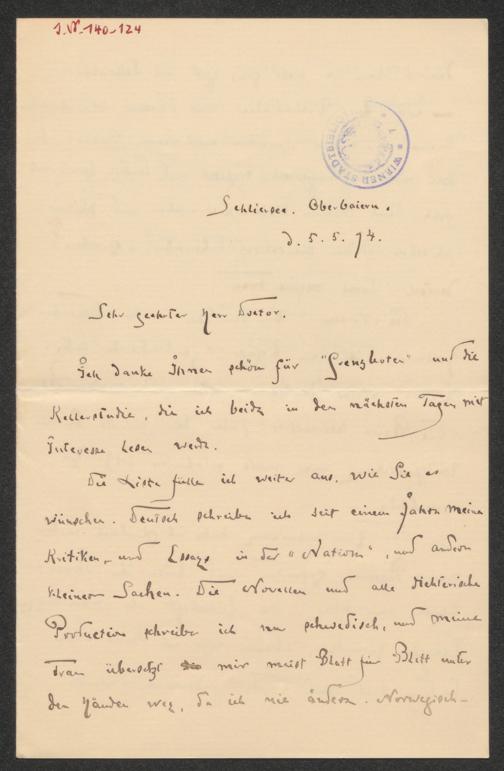 J.N. 140.124
WIENER STADTBIBLIOTHEK
Schliersee. Oberbaiern.
d. 5. 5. 94.
Sehr geehrter Herr Doctor.
Ich danke Ihnen schön für "Grenzboten" und die
Kellerstudie, die ich beide in den nächsten Tagen mit
Interesse lesen werde.
Die Liste fülle ich weiter aus, wie Sie es
wünschen. Deutsch schreibe ich seit einem Jahre meine
Kritiken, und Essays in der "Nation", und andern
kleinern Sachen. Die Novellen und alle dichterische
Production schreibe ich nur schwedisch, und meine
Frau übersetzt mir meist Blatt für Blatt unter
den Händen weg, da ich nie ändere. Norwegisch-